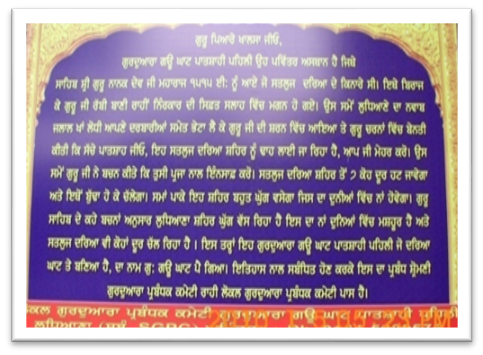 ਗੁਰੂ ਪਿਆਰੇ ਖਾਲਸਾ ਜੀਓ,
ਗੁਰਦੁਆਰਾ ਗਊ ਘਾਟ ਪਾਤਸ਼ਾਹੀ ਪਹਿਲੀ ਉਹ ਪਵਿੱਤਰ ਅਸਥਾਨ ਹੈ ਜਿਥੇ
ਸਾਹਿਬ ਸ੍ਰੀ ਗੁਰੂ ਨਾਨਕ ਦੇਵ ਜੀ ਮਹਾਰਾਜ ੧੫੧੫ ਈ: ਨੂੰ ਆਏ ਜੋ ਸਤਲੁਜ ਦਰਿਆ ਦੇ ਕਿਨਾਰੇ ਸੀ। ਇਥੇ ਬਿਰਾਜ
ਕੇ ਗੁਰੂ ਜੀ ਰੱਬੀ ਬਾਣੀ ਰਾਹੀਂ ਨਿਰੰਕਾਰ ਦੀ ਸਿਫ਼ਤ ਸਲਾਹ ਵਿੱਚ ਮਗਨ ਹੋ ਗਏ। ਉਸ ਸਮੇਂ ਲੁਧਿਆਣੇ ਦਾ ਨਵਾਬ
ਜਲਾਲ ਖਾਂ ਲੋਧੀ ਆਪਣੇ ਦਰਬਾਰੀਆਂ ਸਮੇਤ ਭੇਟਾ ਲੈ ਕੇ ਗੁਰੂ ਜੀ ਦੀ ਸ਼ਰਨ ਵਿੱਚ ਆਇਆ ਤੇ ਗੁਰੂ ਚਰਨਾਂ ਵਿੱਚ ਬੇਨਤੀ
ਕੀਤੀ ਕਿ ਸੱਚੇ ਪਾਤਸ਼ਾਹ ਜੀਓ, ਇਹ ਸਤਲੁਜ ਦਰਿਆ ਸ਼ਹਿਰ ਨੂੰ ਢਾਹ ਲਾਈ ਜਾ ਰਿਹਾ ਹੈ, ਆਪ ਜੀ ਮੇਹਰ ਕਰੋ। ਉਸ
ਸਮੇਂ ਗੁਰੂ ਜੀ ਨੇ ਬਚਨ ਕੀਤੇ ਕਿ ਤੁਸੀ ਪ੍ਰਜਾ ਨਾਲ ਇੰਨਸਾਫ਼ ਕਰੋ। ਸਤਲੁਜ ਦਰਿਆ ਸ਼ਹਿਰ ਤੋਂ ੭ ਕੋਹ ਦੂਰ ਹਟ ਜਾਵੇਗਾ
ਅਤੇ ਇਥੋਂ ਬੁੱਢਾ ਹੋ ਕੇ ਚੱਲੇਗਾ। ਸਮਾਂ ਪਾਕੇ ਇਹ ਸ਼ਹਿਰ ਬਹੁਤ ਘੁੱਗ ਵਸੇਗਾ ਜਿਸ ਦਾ ਦੁਨੀਆਂ ਵਿੱਚ ਨਾਂ ਹੋਵੇਗਾ। ਗੁਰੂ
ਸਾਹਿਬ ਦੇ ਕਹੇ ਬਚਨਾਂ ਅਨੁਸਾਰ ਲੁਧਿਆਣਾ ਸ਼ਹਿਰ ਘੁੱਗ ਵੱਸ ਰਿਹਾ ਹੈ ਇਸ ਦਾ ਨਾਂ ਦੁਨਿਆਂ ਵਿੱਚ ਮਸ਼ਹੂਰ ਹੈ ਅਤੇ
ਸਤਲੁਜ ਦਰਿਆ ਵੀ ਕੋਹਾਂ ਦੂਰ ਚੱਲ ਰਿਹਾ ਹੈ । ਇਸ ਤਰ੍ਹਾਂ ਇਹ ਗੁਰਦੁਆਰਾ ਗਊ ਘਾਟ ਪਾਤਸ਼ਾਹੀ ਪਹਿਲੀ ਜੋ ਦਰਿਆ
ਘਾਟ ਤੇ ਬਣਿਆ ਹੈ, ਦਾ ਨਾਮ ਗੁ: ਗਊ ਘਾਟ ਪੈ ਗਿਆ। ਇਤਿਹਾਸ ਨਾਲ ਸਬੰਧਿਤ ਹੋਣ ਕਰਕੇ ਇਸ ਦਾ ਪ੍ਰਬੰਧ ਸ਼੍ਰੋਮਣੀ
ਗੁਰਦੁਆਰਾ ਪ੍ਰਬੰਧਕ ਕਮੇਟੀ ਰਾਹੀ ਲੋਕਲ ਗੁਰਦੁਆਰਾ ਪ੍ਰਬੰਧਕ ਕਮੇਟੀ ਪਾਸ ਹੈ।
ਲੋਕਲ ਗੁਰਦੁਆਰਾ ਪ੍ਰਬੰਧਕ ਕਮੇਟੀ ਗੁਰਦੁਆਰਾ ਗਊ ਘਾਟ ਪਾਤਸ਼ਾਹੀ ਪਹਿਲੀ
ਲੁਧਿਆਣਾ